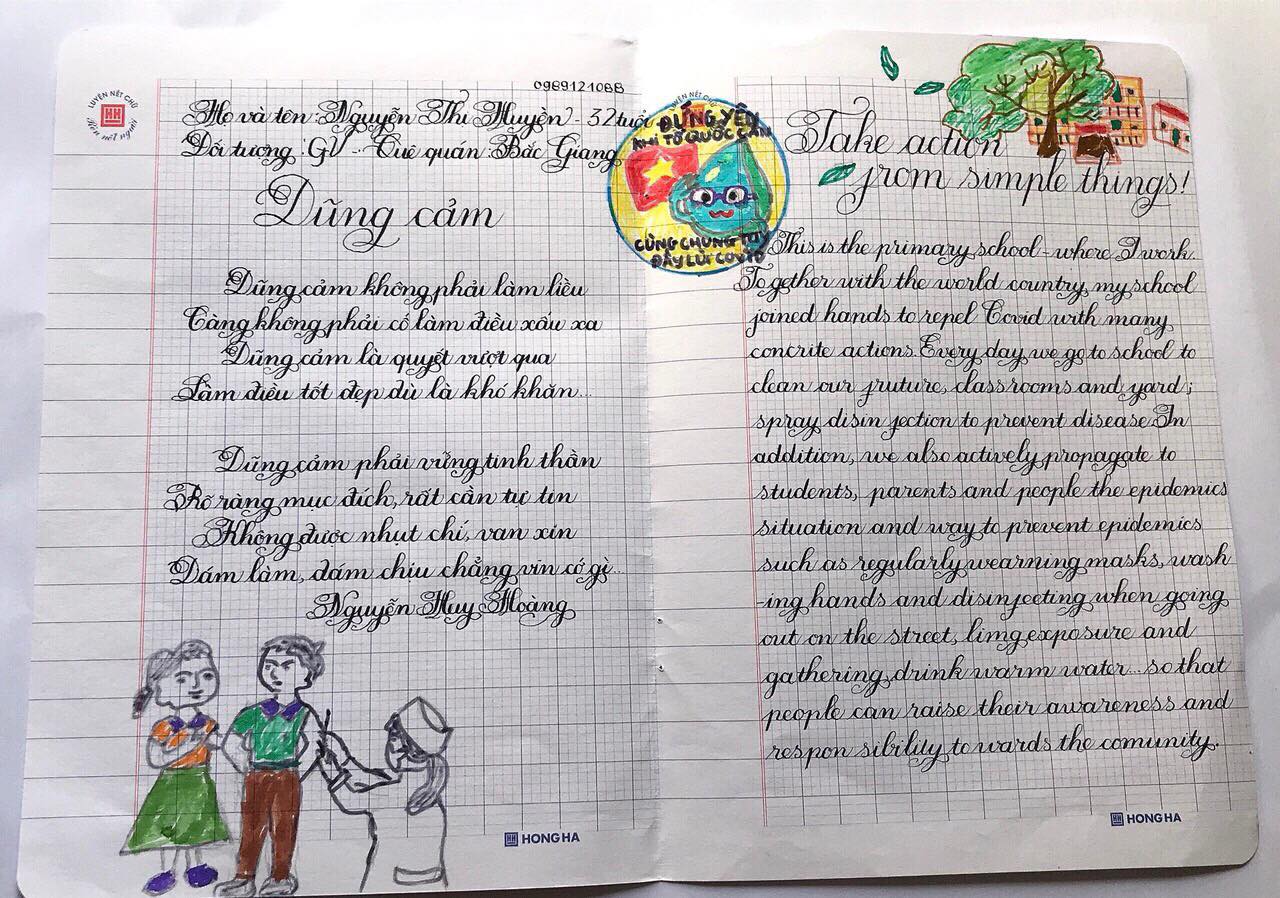 LUYỆN NÉT CHỮ
Rèn nết người
0989121088
Họ và tên: Nguyễn Thị Huyền - 32 tuổi
Đối tượng: GV - Quê quán: Bắc Giang
Dũng cảm
Dũng cảm không phải làm liều
Càng không phải cố làm điều xấu xa
Dũng cảm là quyết vượt qua
Làm điều tốt đẹp dù là khó khăn...
Dũng cảm phải vững tinh thần
Rõ ràng mục đích, rất cần tự tin
Không được nhụt chí, van xin
Dám làm, dám chịu chẳng vin cớ gì...
Nguyễn Huy Hoàng
HONG HA
LUYỆN NÉT CHỮ
ĐỨNG YÊN
KHI TỔ QUỐC CẦN
CÙNG CHUNG TAY
ĐẨY LÙI COVID
Take action
from simple things!
This is the primary school - where I work.
Together with the world country, my school
joined hands to repel Covid with many
concrite actions. Every day, we go to school to
clean our fruture, classrooms and yard;
spray disinfection to prevent disease. In
addition, we also actively propagate to
students, parents and people the epidemics
situation and way to prevent epidemics
such as regularly wearning masks, wash
-ing hands and disinfecting when going
out on the street, limg exposure and
gathering, drink warm water... so that
people can raise their awareness and
responsibility towards the comunity.
HONG HA